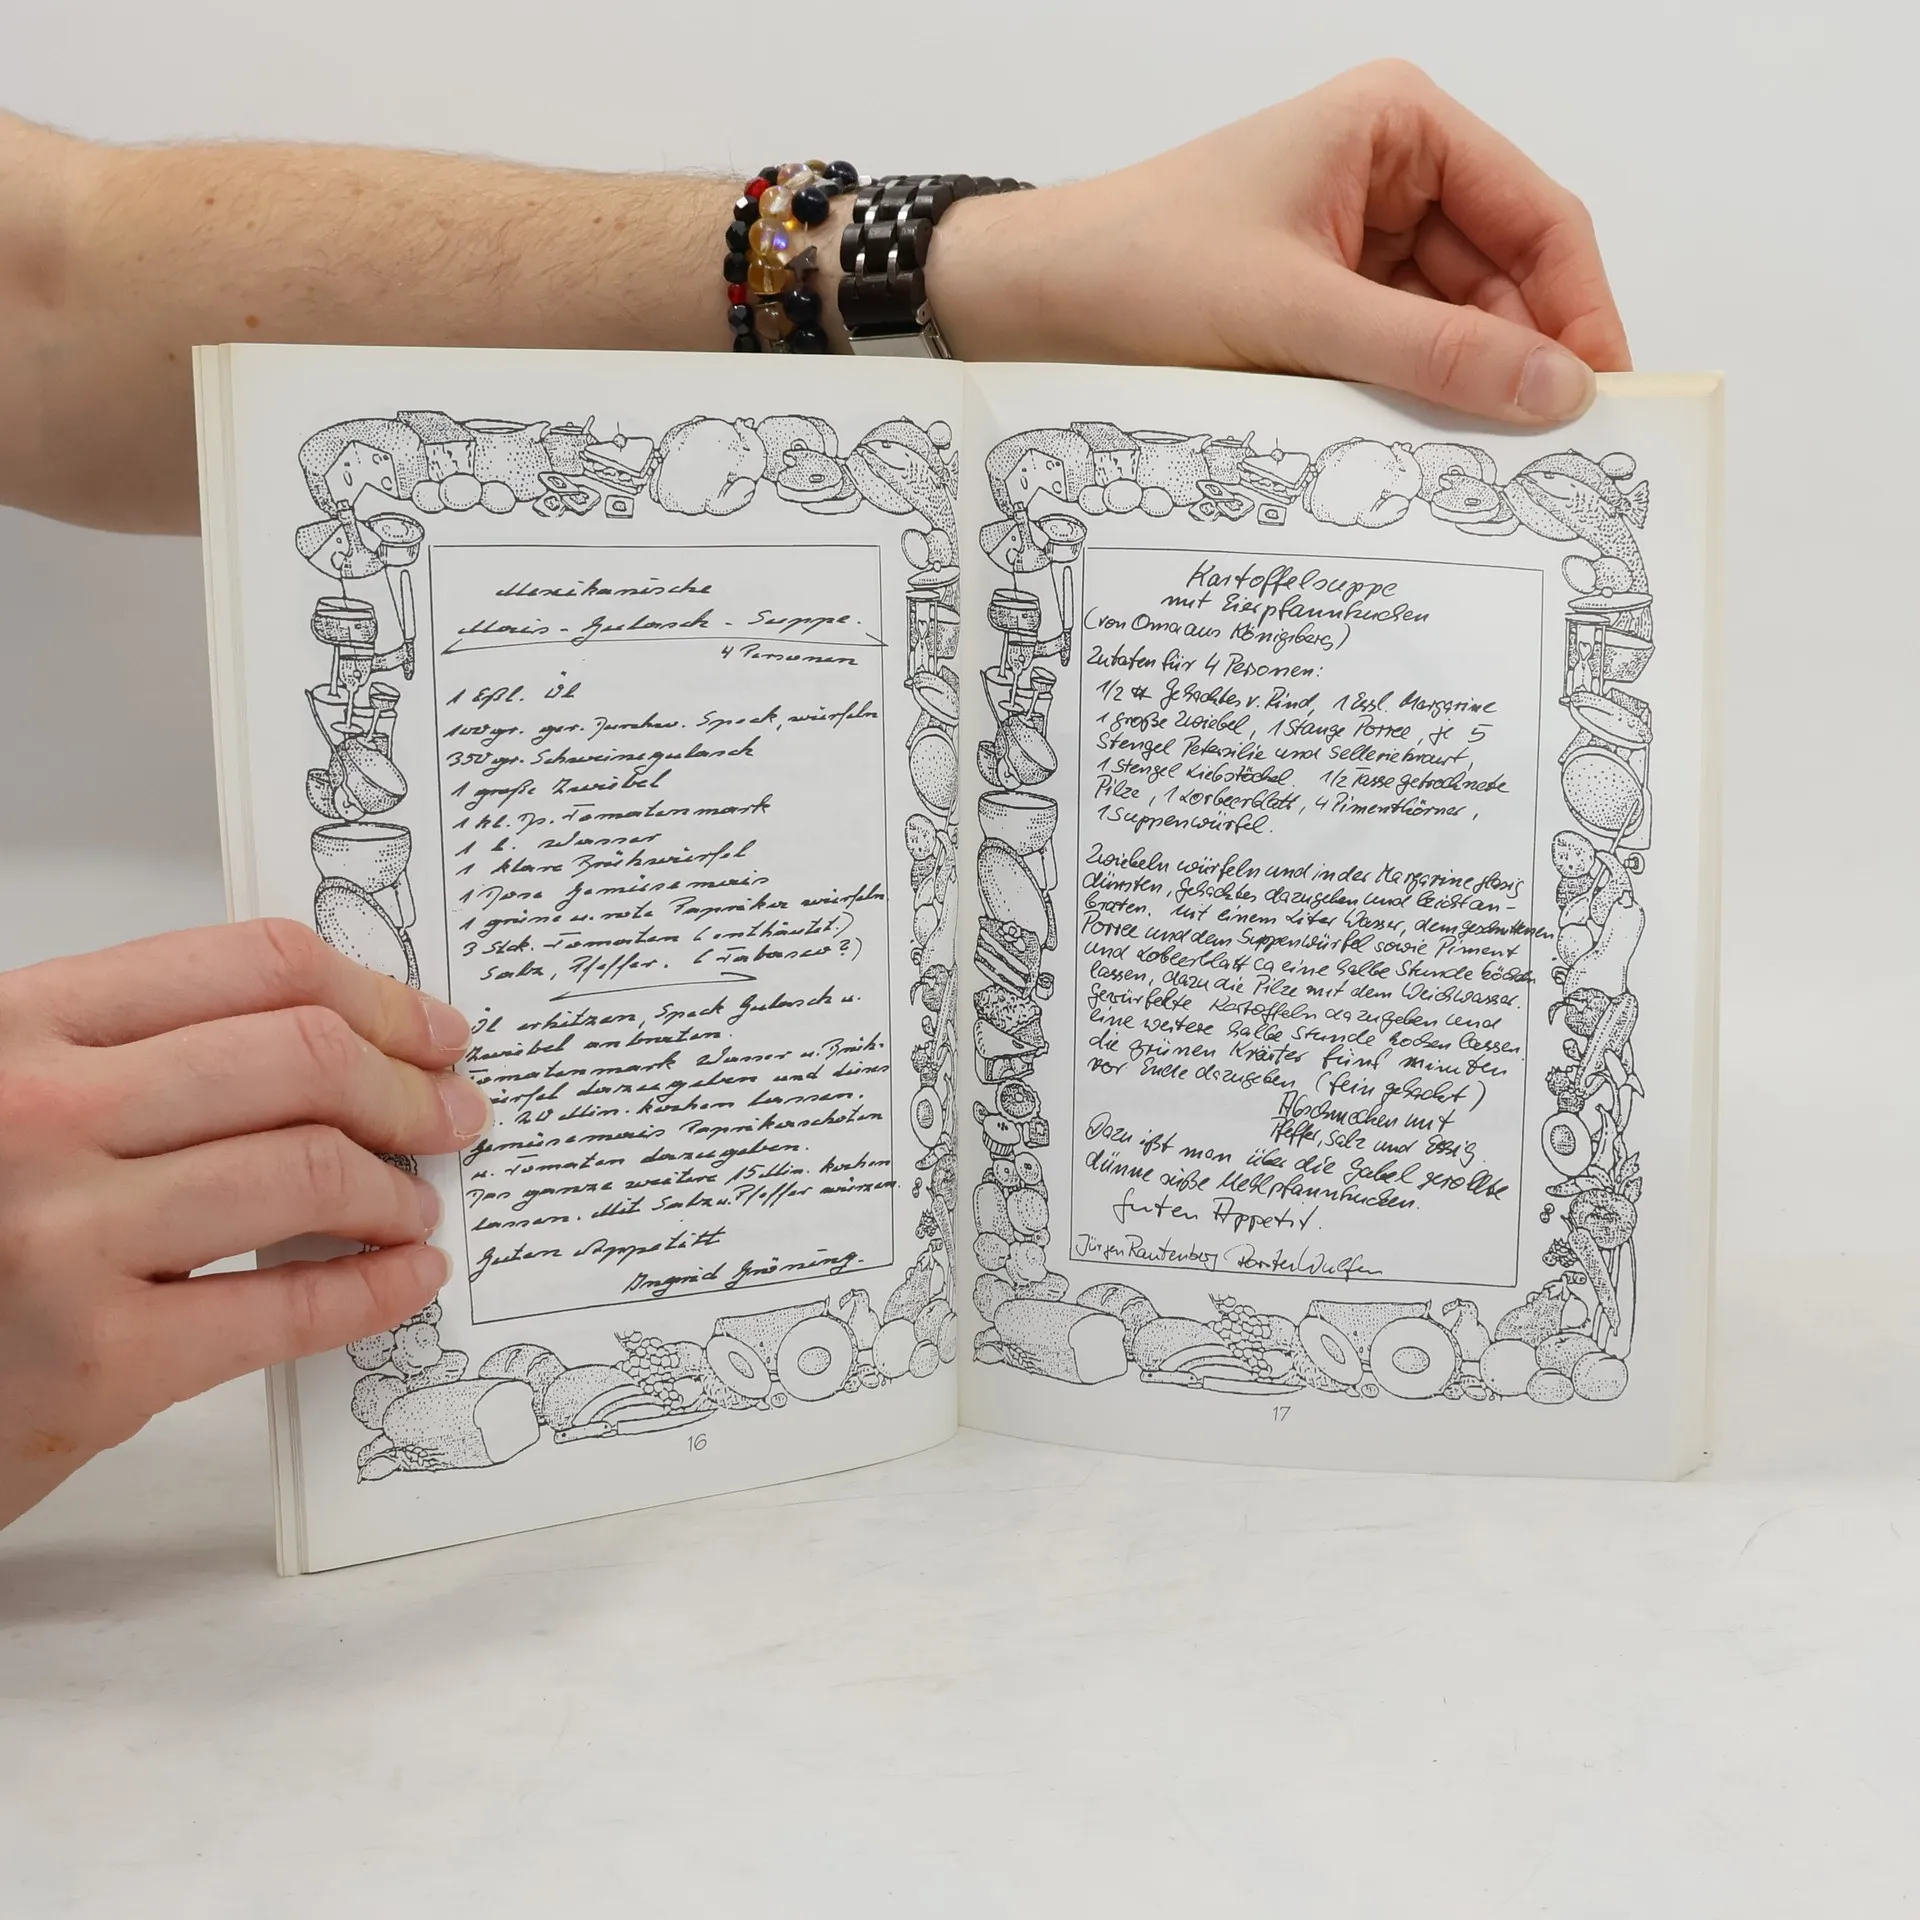 Mexikanische
Mais-Gulasch-Suppe.
4 Personen
1 Eßl. Öl
100 gr. ger. durchw. Speck, würfeln
350 gr. Schweinegulasch
1 große Zwiebel
1 kl. Ds. Tomatenmark
1 l. Wasser
1 klare Brühwürfel
1 Dose Gemüsemais
1 grüne u. rote Paprika würfeln
3 Stck. Tomaten (enthäutet)
Salz, Pfeffer. (Tabasco?)
Öl erhitzen, Speck Gulasch u.
Zwiebel anbraten.
Tomatenmark Wasser u. Brüh-
würfel dazugeben und dieses
20 Min. kochen lassen.
Gemüsemais Paprikaschoten
u. Tomaten dazugeben.
Das ganze weitere 15 Min. kochen
lassen. Mit Salz u. Pfeffer würzen.
Guten Appetitt
Ingrid Gröning.
16
Kartoffelsuppe
mit Eierpfannkuchen
(von Oma aus Königsberg)
Zutaten für 4 Personen:
1/2 # Gehacktes v. Rind, 1 Essl. Margarine
1 große Zwiebel, 1 Stange Porree, je 5
Stengel Petersilie und Selleriekraut,
1 Stengel Liebstöckel. 1/2 Tasse getrocknete
Pilze, 1 Lorbeerblatt, 4 Pimentkörner,
1 Suppenwürfel.
Zwiebeln würfeln und in der Margarine glasig
dünsten, Gehacktes dazugeben und leicht an-
braten. Mit einem Liter Wasser, dem geschnittenen
Porree und dem Suppenwürfel sowie Piment
und Lobeerblatt ca eine halbe Stunde köcheln
lassen, dazu die Pilze mit dem Weichwasser.
Gewürfelte Kartoffeln dazugeben und
eine weitere halbe Stunde kochen lassen.
die grünen Kräuter fünf minuten
vor Ende dazugeben (fein gehackt)
Abschmecken mit
Pfeffer, Salz und Essig.
Dazu ißt man über die Gabel gerollte
dünne süße Mehlpfannkuchen.
Guten Appetit.
Jürgen Rautenberg Torsten Wulfen
17